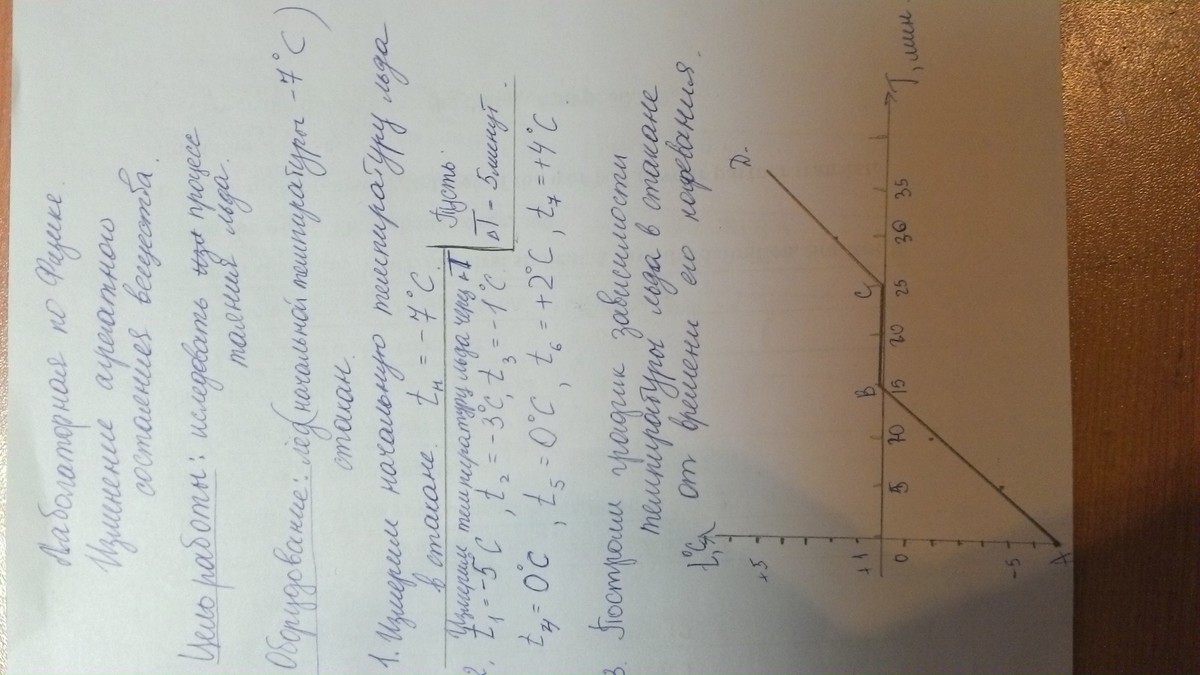 Лабораторная по Физике.
Изменение агрегатного
состояния вещества.
Цель работы: исследовать процесс
таяния льда.
Оборудование: лёд (начальной температуры -7°C)
стакан.
1. Измерим начальную температуру льда
в стакане. tн = -7°C.
2. Измерим температуру льда через ΔT
Пусть
ΔT = 5 минут.
t1 = -5°C, t2 = -3°C, t3 = -1°C
t4 = 0°C, t5 = 0°C, t6 = +2°C, t7 = +4°C
3. Построим график зависимости
температуры льда в стакане
от времени его нагревания.
t,°C
+5
+1
0
-5
A
B
C
Д
5 10 15 20 25 30 35
T, мин.